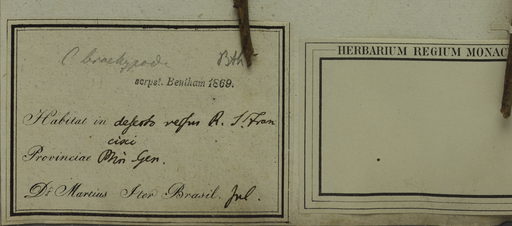 C brachypoda Bth
scrpst. Bentham 1869.
Habitat in deserto versus R. S. Fran
cisci
Provinciae Min Gen.
Dr Martius Iter Brasil. Jul.
HERBARIUM REGIUM MONAC